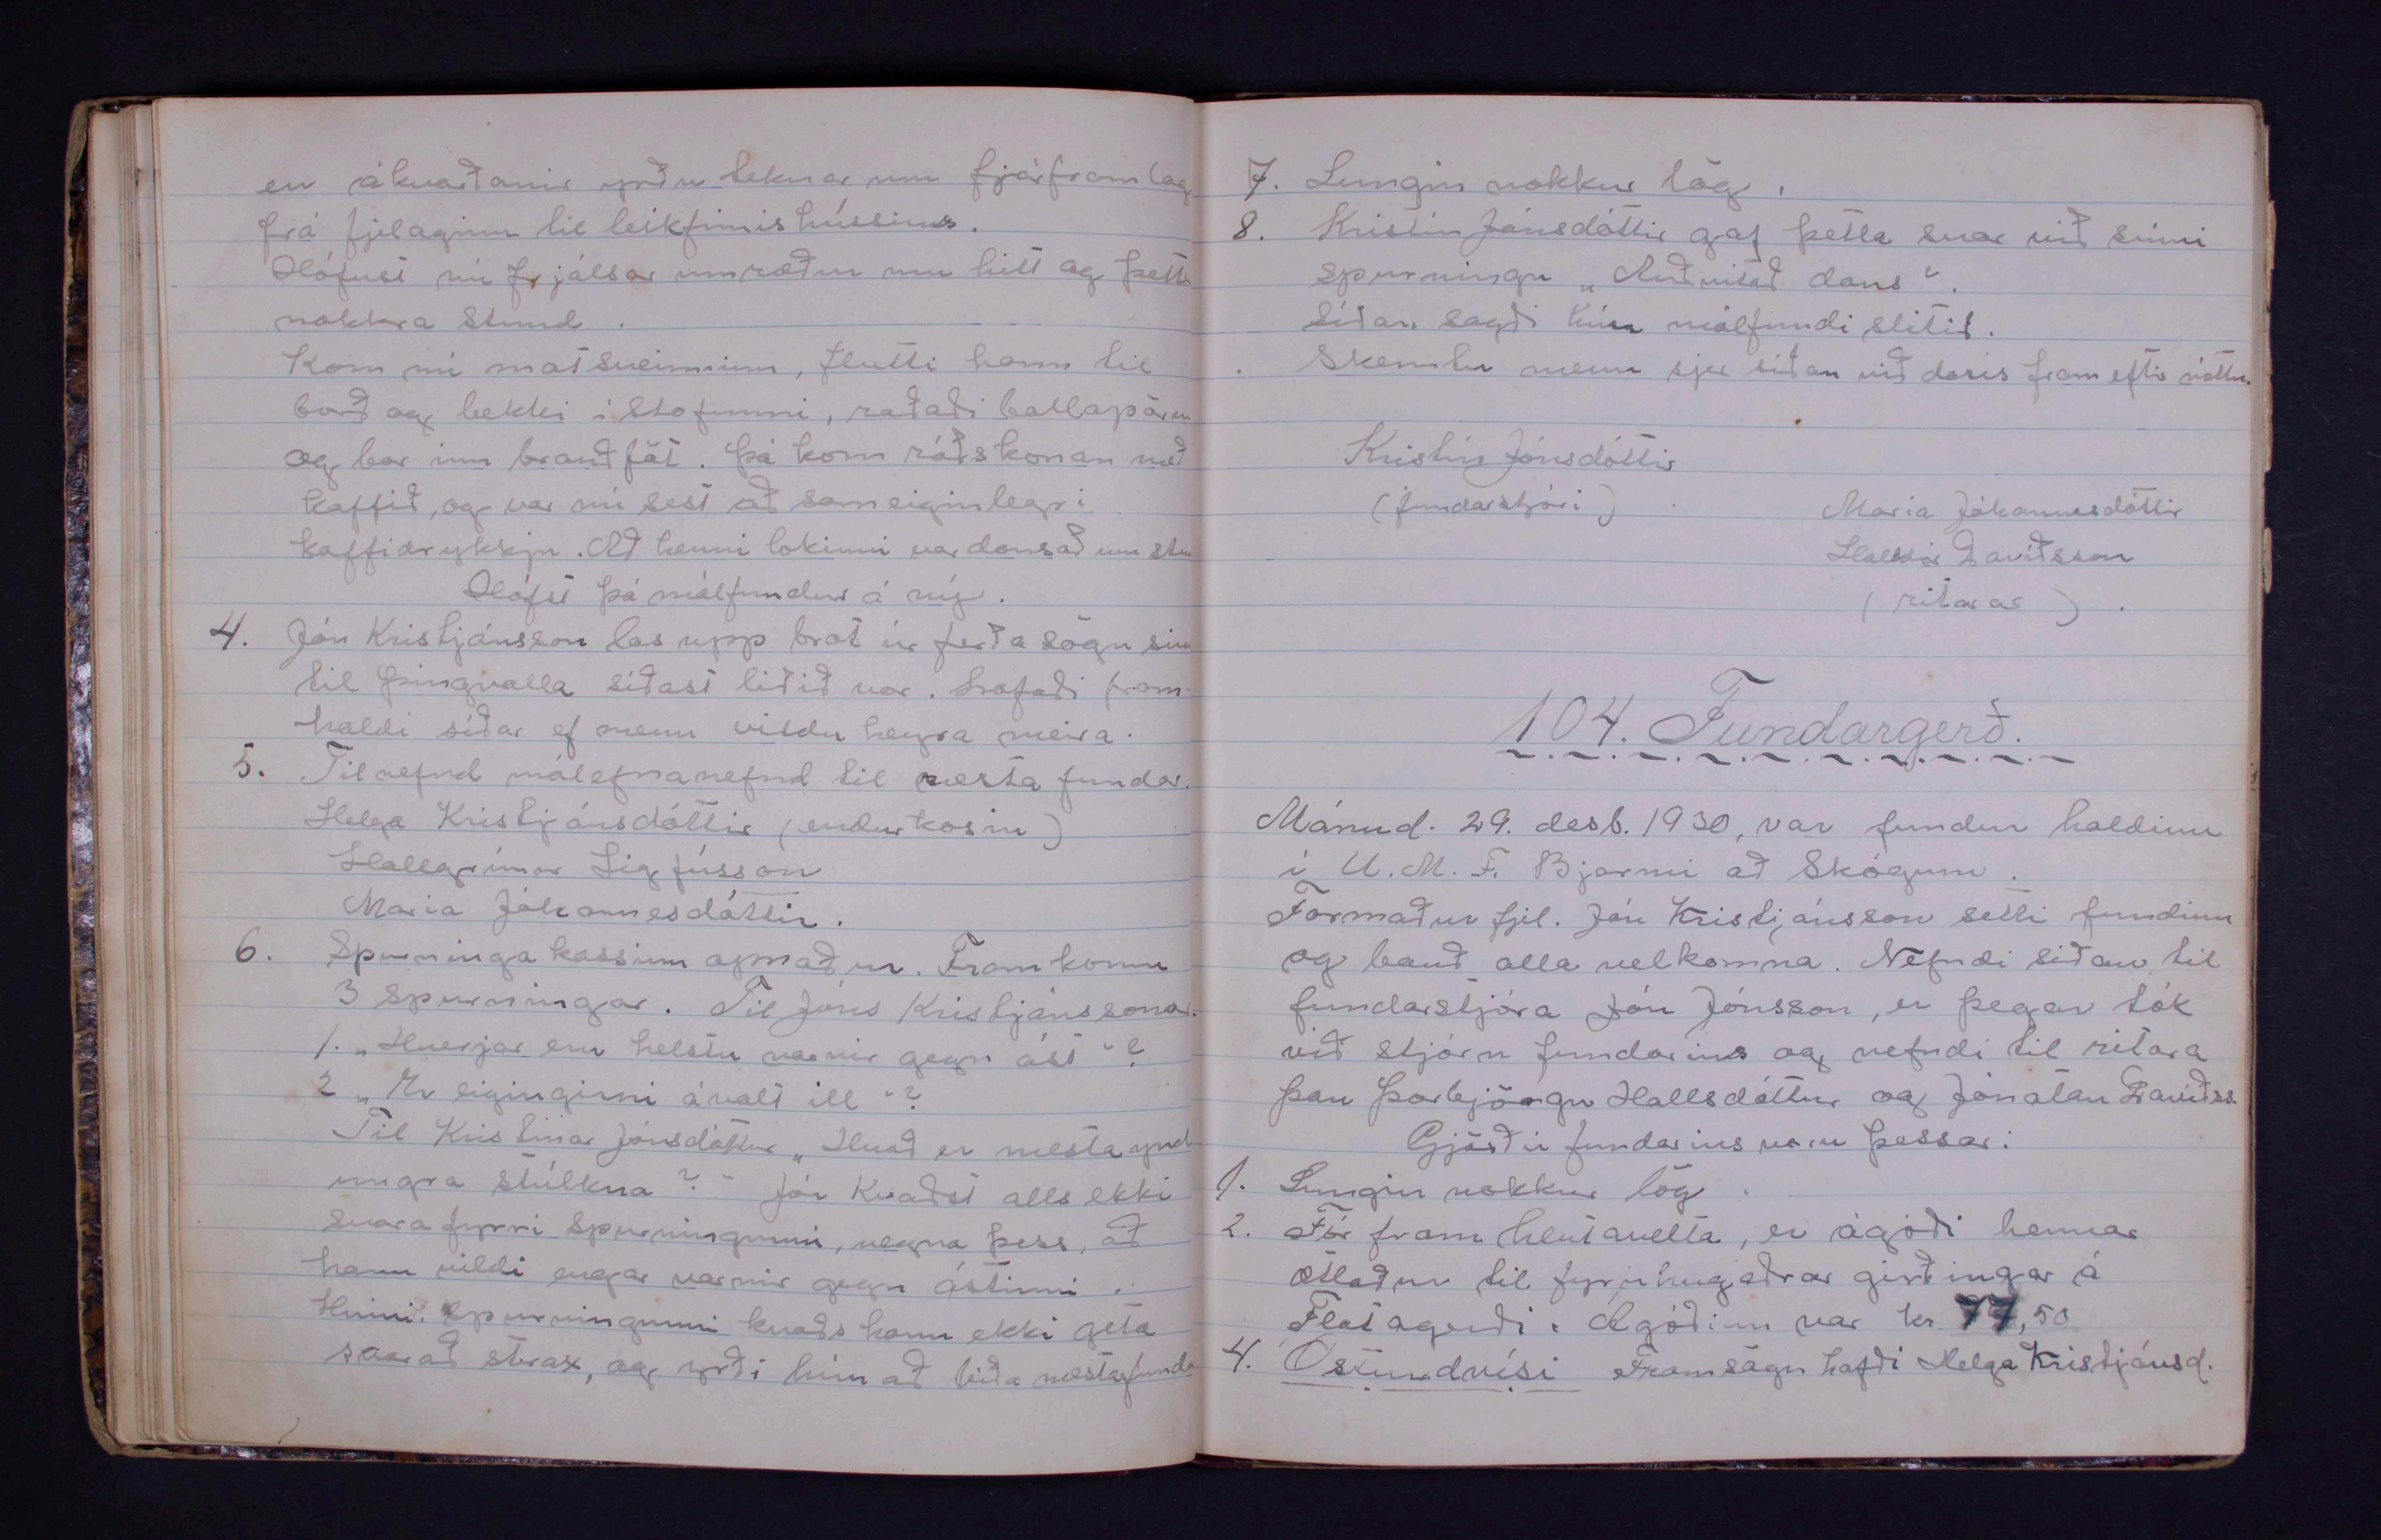 en ákvarðanir yrðu teknar um fjárframlag
frá fjelaginu til leikfimishússins.
Hófust nú frjálsar umræður um hitt og þetta
nokkra stund.
Kom nú matsveinninn, flutti hann til
borð og bekki í stofunni, raðaði bollapörum
og bar inn brauðföt. Þá kom ráðskonan með
kaffið, og var nú sest að sameiginlegri
kaffidrykkju. Að henni lokinni var dansað um stu
Hófst þá málfundur á ný.
4. Jón Kristjánsson las upp brot úr ferðasögu sinn
til Þingvalla síðast liðið vor. Lofaði fram-
haldi síðar ef menn vildu heyra meira.
5. Tilnefnd málefnanefnd til næsta fundar.
Helga Kristjánsdóttir (endurkosin)
Hallgrímur Sigfússon
Maria Jóhannesdóttir.
6. Spurningakassinn opnaður. Fram komu
3 spurningar. Til Jóns Kristjánssonar.
1. „Hverjar eru helstu varnir gegn ást“?
2 „Er eigingirni ávalt ill“?
Til Kristínar Jónsdóttur „Hvað er mesta ynd
ungra stúlkna?“ Jón kvaðst alls ekki
svara fyrri spurningunni, vegna þess, að
hann vildi engar varnir gegn ástinni.
Hinni spurningunni kvaðs hann ekki geta
svarað strax, og yrði hún að bíða næsta funda
7. Sungin nokkur lög.
8. Kristín Jónsdóttir gaf þetta svar við sinni
spurningu „Auðvitað dans“.
Síðan sagði hún málfundi slitið.
Skemtu menn sjer síðan við dans fram eftir nóttu.
Kristín Jónsdóttir
(fundarstjóri)
Maria Jóhannesdóttir
Halldór Davíðsson
(ritarar).
104. Fundargerð.
Mánud. 29. desb. 1930, var fundur haldinn
í U.M.F. Bjarmi að Skógum.
Formaður fjel. Jón Kristjánsson setti fundinn
og bauð alla velkomna. Nefndi síðan til
fundarstjóra Jón Jónsson, er þegar tók
við stjórn fundarins og nefndi til ritara
þau Þorbjörgu Hallsdóttur og Jónatan Davíðss.
Gjörðir fundarins voru þessar:
1. Sungin nokkur lög.
2. Fór fram hlutavelta, er ágóði hennar
ætlaður til fyrirhugaðrar girðingar á
Flatagerði. Ágóðinn var kr 77,50
4. Óstundvísi Framsögu hafði Helga Kristjánsd.